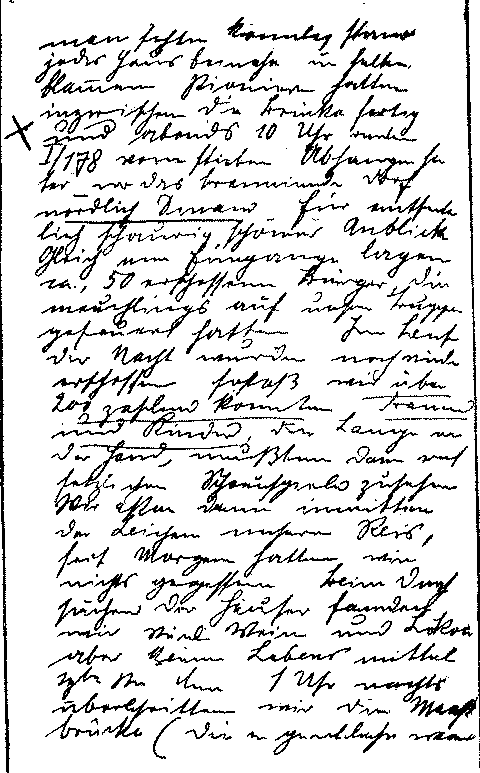 man sehen konnte, stand
jedes Haus beinahe in hellen
Flammen Pioniere hatten
inzwischen die Brücke fertig
und abends 10 Uhr
I/178 vom steilen Abhange
vor das brennende Dorf
nördlich Dinant Ein entsetz
lich schaurig schöner Anblick
Gleich am Eingange lagen
ca. 50 erschossene Bürger, die
meuchlings auf unsre Truppen
gefeuert hatten Im Lauf
der Nacht wurden noch viele
erschossen sodaß wir über
200 zählen konnten Frauen
und Kinder, die Lampe in
der Hand, mußten dem ent
setzlichen Schauspiele zusehen
Wir aßen dann inmitten
der Leichen unsern Reis,
seit Morgen hatten wir
nichts gegessen Beim Durch
suchen der Häuser fanden
wir viel Wein und Liköre
aber keine Lebensmittel
1 Uhr nachts
überschritten wir die Maas
brücke (die eigentliche war